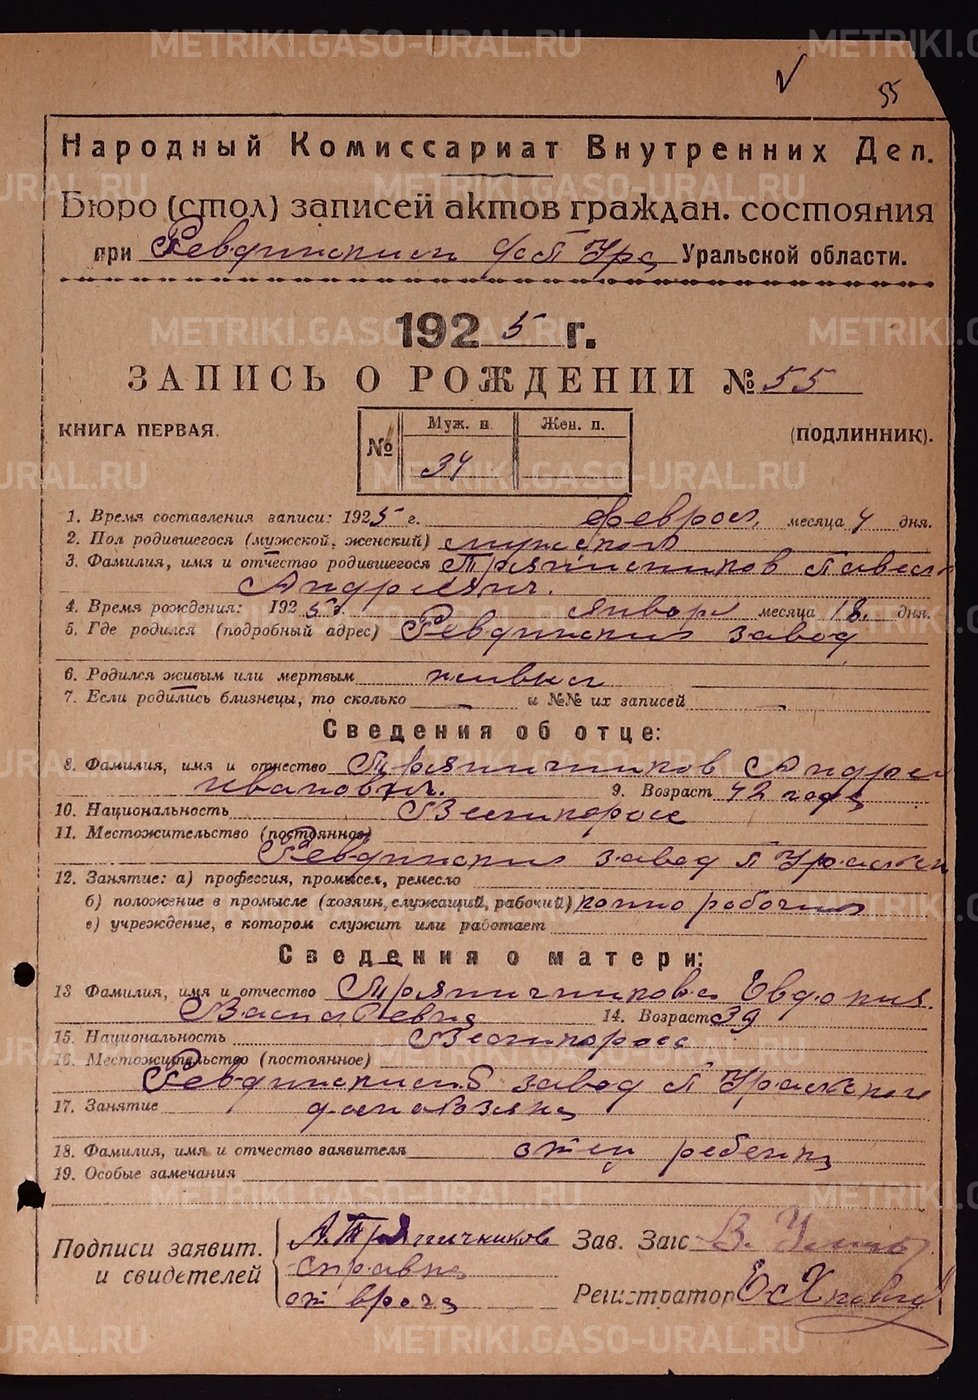 METRIKI.GASO-URAL.RU
55
Народный Комиссариат Внутренних Дел.
Бюро (стол) записей актов граждан. состояния
при Уральской области.
1925 г.
ЗАПИСЬ О РОЖДЕНИИ № 55
КНИГА ПЕРВАЯ.
(ПОДЛИННИК).
№ Муж. п. Жен. п.
34
1. Время составления записи: 1925 г. месяца 4 дня.
2. Пол родившегося (мужской, женский) мужской
3. Фамилия, имя и отчество родившегося Тряпичников Павел
Андреевич.
4. Время рождения: 1925 г. января месяца 18. дня.
5. Где родился (подробный адрес) Ревдинский завод
6. Родился живым или мертвым живым
7. Если родились близнецы, то сколько — и №№ их записей —
Сведения об отце:
8. Фамилия, имя и отчество Тряпичников Андрей
Иванович. 9. Возраст 42 года
10. Национальность Великоросс
11. Местожительство (постоянное)
Ревдинский завод
12. Занятие: а) профессия, промысел, ремесло
б) положение в промысле (хозяин, служащий, рабочий) рабочий
в) учреждение, в котором служит или работает
Сведения о матери:
13 Фамилия, имя и отчество Тряпичникова Евдокия
Васильевна 14. Возраст 39
15. Национальность Великоросс
16. Местожительство (постоянное)
Ревдинский завод
17. Занятие домохозяйка
18. Фамилия, имя и отчество заявителя отец ребенка
19. Особые замечания
Подписи заявит. и свидетелей
А. Тряпичников
справка
от врача
Зав. Загс В.
Регистратор